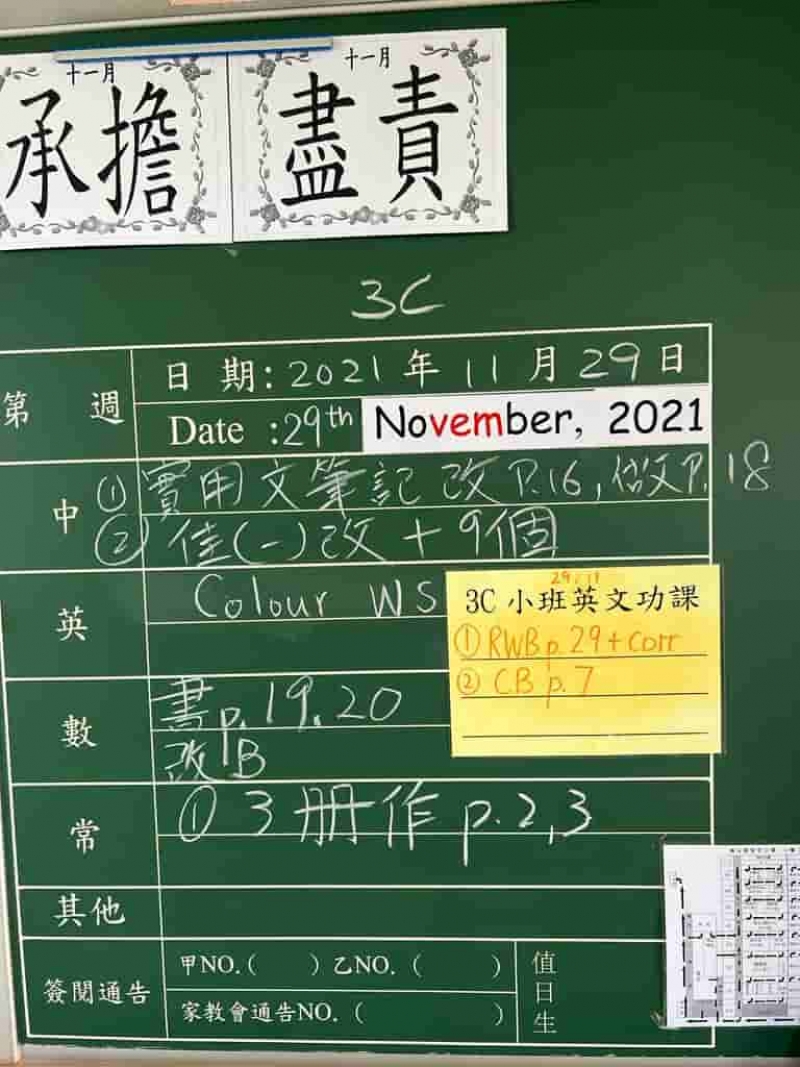 十一月
承擔
十一月
盡責
3C
第 週
日 期: 2021 年 11 月 29 日
Date :29th November, 2021
中
① 實用文筆記 改 P.16, 做P. 18
② 佳(一)改 + 9個
英
Colour WS
29/11
3C 小班英文功課
① RWB p.29+corr
② CB p.7
數
書p.19.20
改B
常
① 3 册作 p.2,3
其他
簽閱通告
甲NO.( ) 乙NO. ( )
家教會通告NO. ( )
值日生